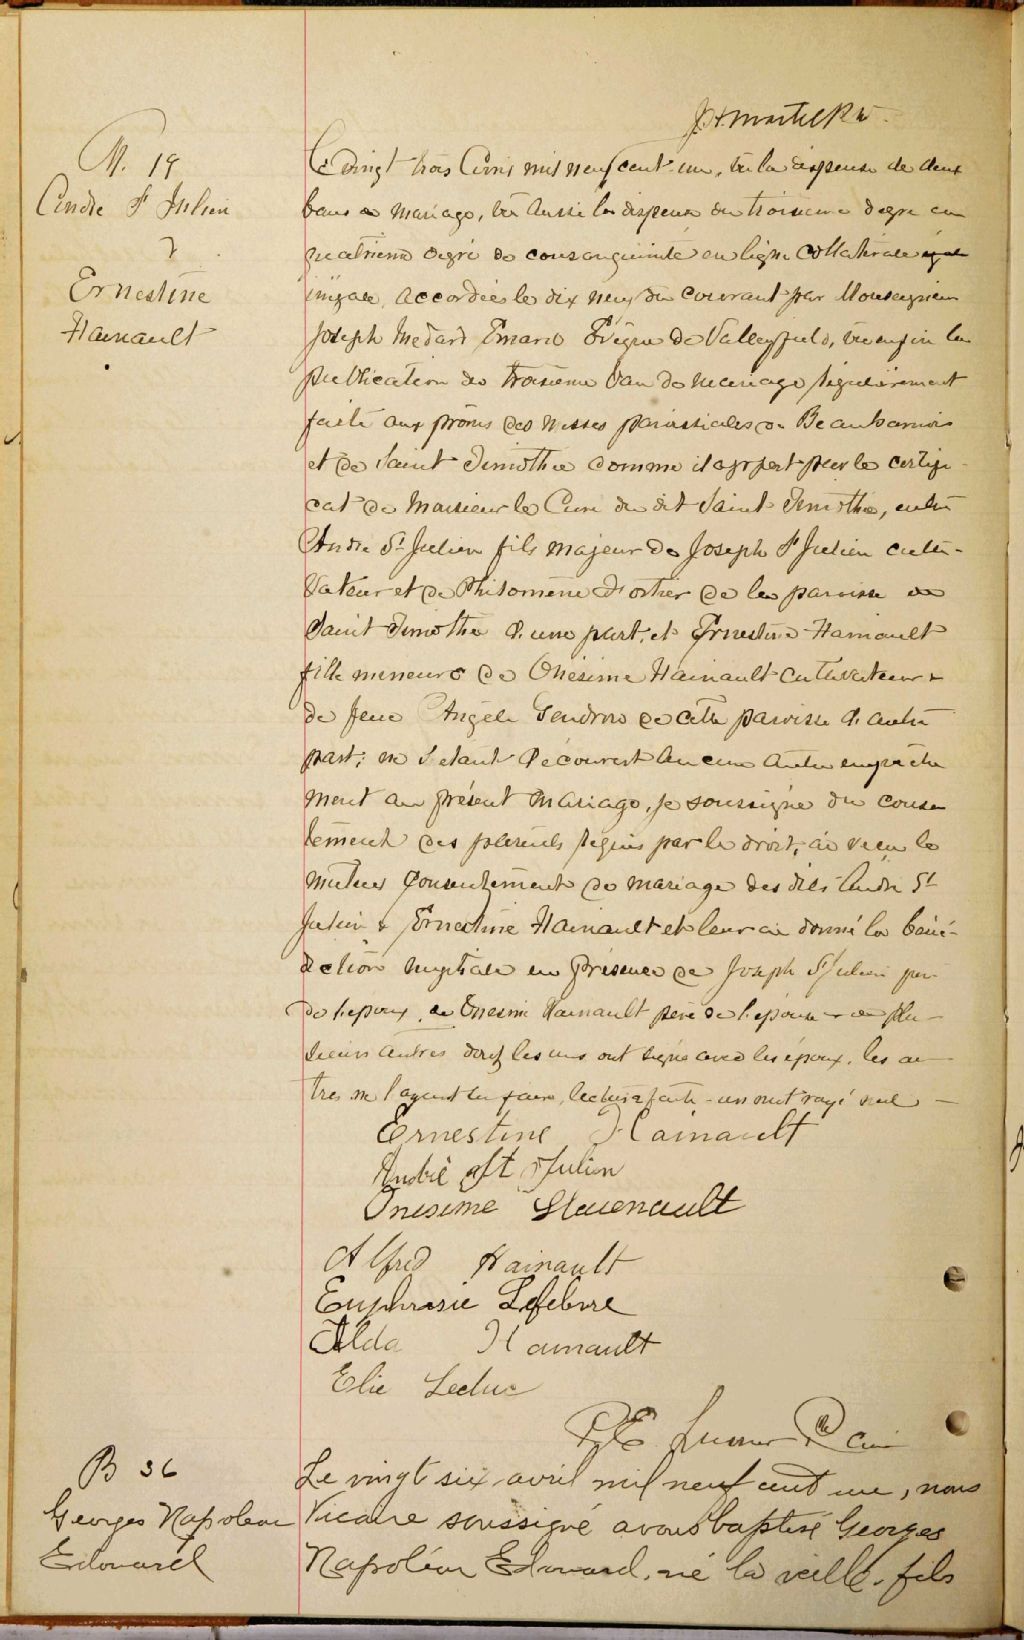 M. 19
André St Julien
&
Ernestine
Hainault
Le vingt trois Avril mil neuf cent un, vu la dispense de deux
bans de mariage, vu aussi la dispense du troisieme degré au
quatrième degré de consanguinité en ligne collatérale
inégale, accordées le dix neuf du courant par Monseigneur
Joseph Medard Emard Evêque de Valleyfield, vu enfin la
publication du troisième ban de mariage régulièrement
faite aux prônes des messes paroissiales de Beauharnois
et de Saint Timothée comme il appert par le certifi-
cat de Monsieur le Curé du dit Saint Timothée, entre
André St Julien fils majeur de Joseph St Julien culti-
vateur et de Philomène Fortier de la paroisse de
Saint Timothée d'une part, et Ernestine Hainault
fille mineure de Onésime Hainault cultivateur &
de feue Angèle Gendron de cette paroisse d'autre
part; ne s'étant découvert aucun autre empêche
ment au présent mariage, je soussigné du consen
tement des parents requis par le droit, ai reçu le
mutuel consentement de mariage des dits André St
Julien & Ernestine Hainault et leur ai donné la béné-
diction nuptiale en présence de Joseph St Julien père
de l'époux, de Onésime Hainault père de l'épouse & de plu-
sieurs autres dont les uns ont signé avec les époux, les au-
tres ne l'ayant su faire, lecture faite - un mot rayé nul -
Ernestine Hainault
André St Julien
Onesime Hainault
Alfred Hainault
Euphrasie Lefebvre
Alda Hainault
Elie Leduc
curé
B 36
Georges Napoléon
Edouard
Le vingt six avril mil neuf cent un, nous
Vicaire soussigné avons baptisé Georges
Napoléon Edouard, né la veille, fils